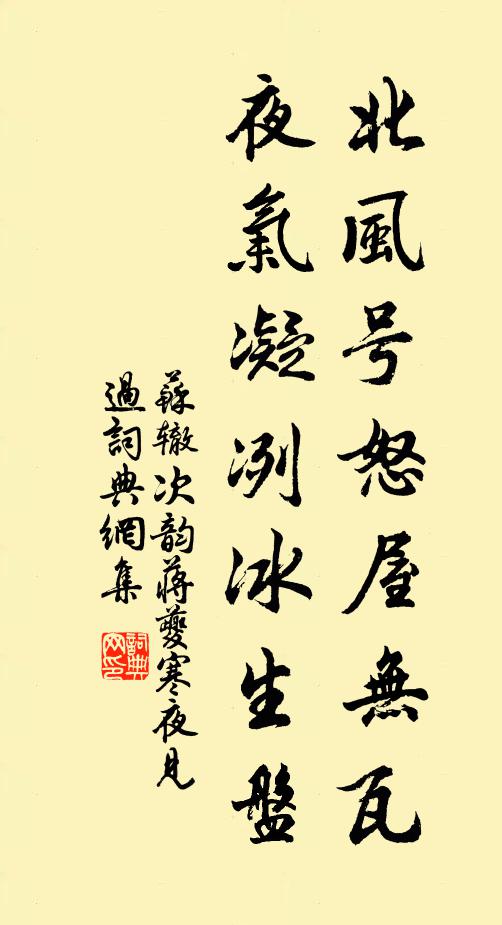 北風号怒屋無瓦
夜氣凝冽冰生盤
蘇辙次韵蔣夔寒夜見
過詞典網集
詞典
网印